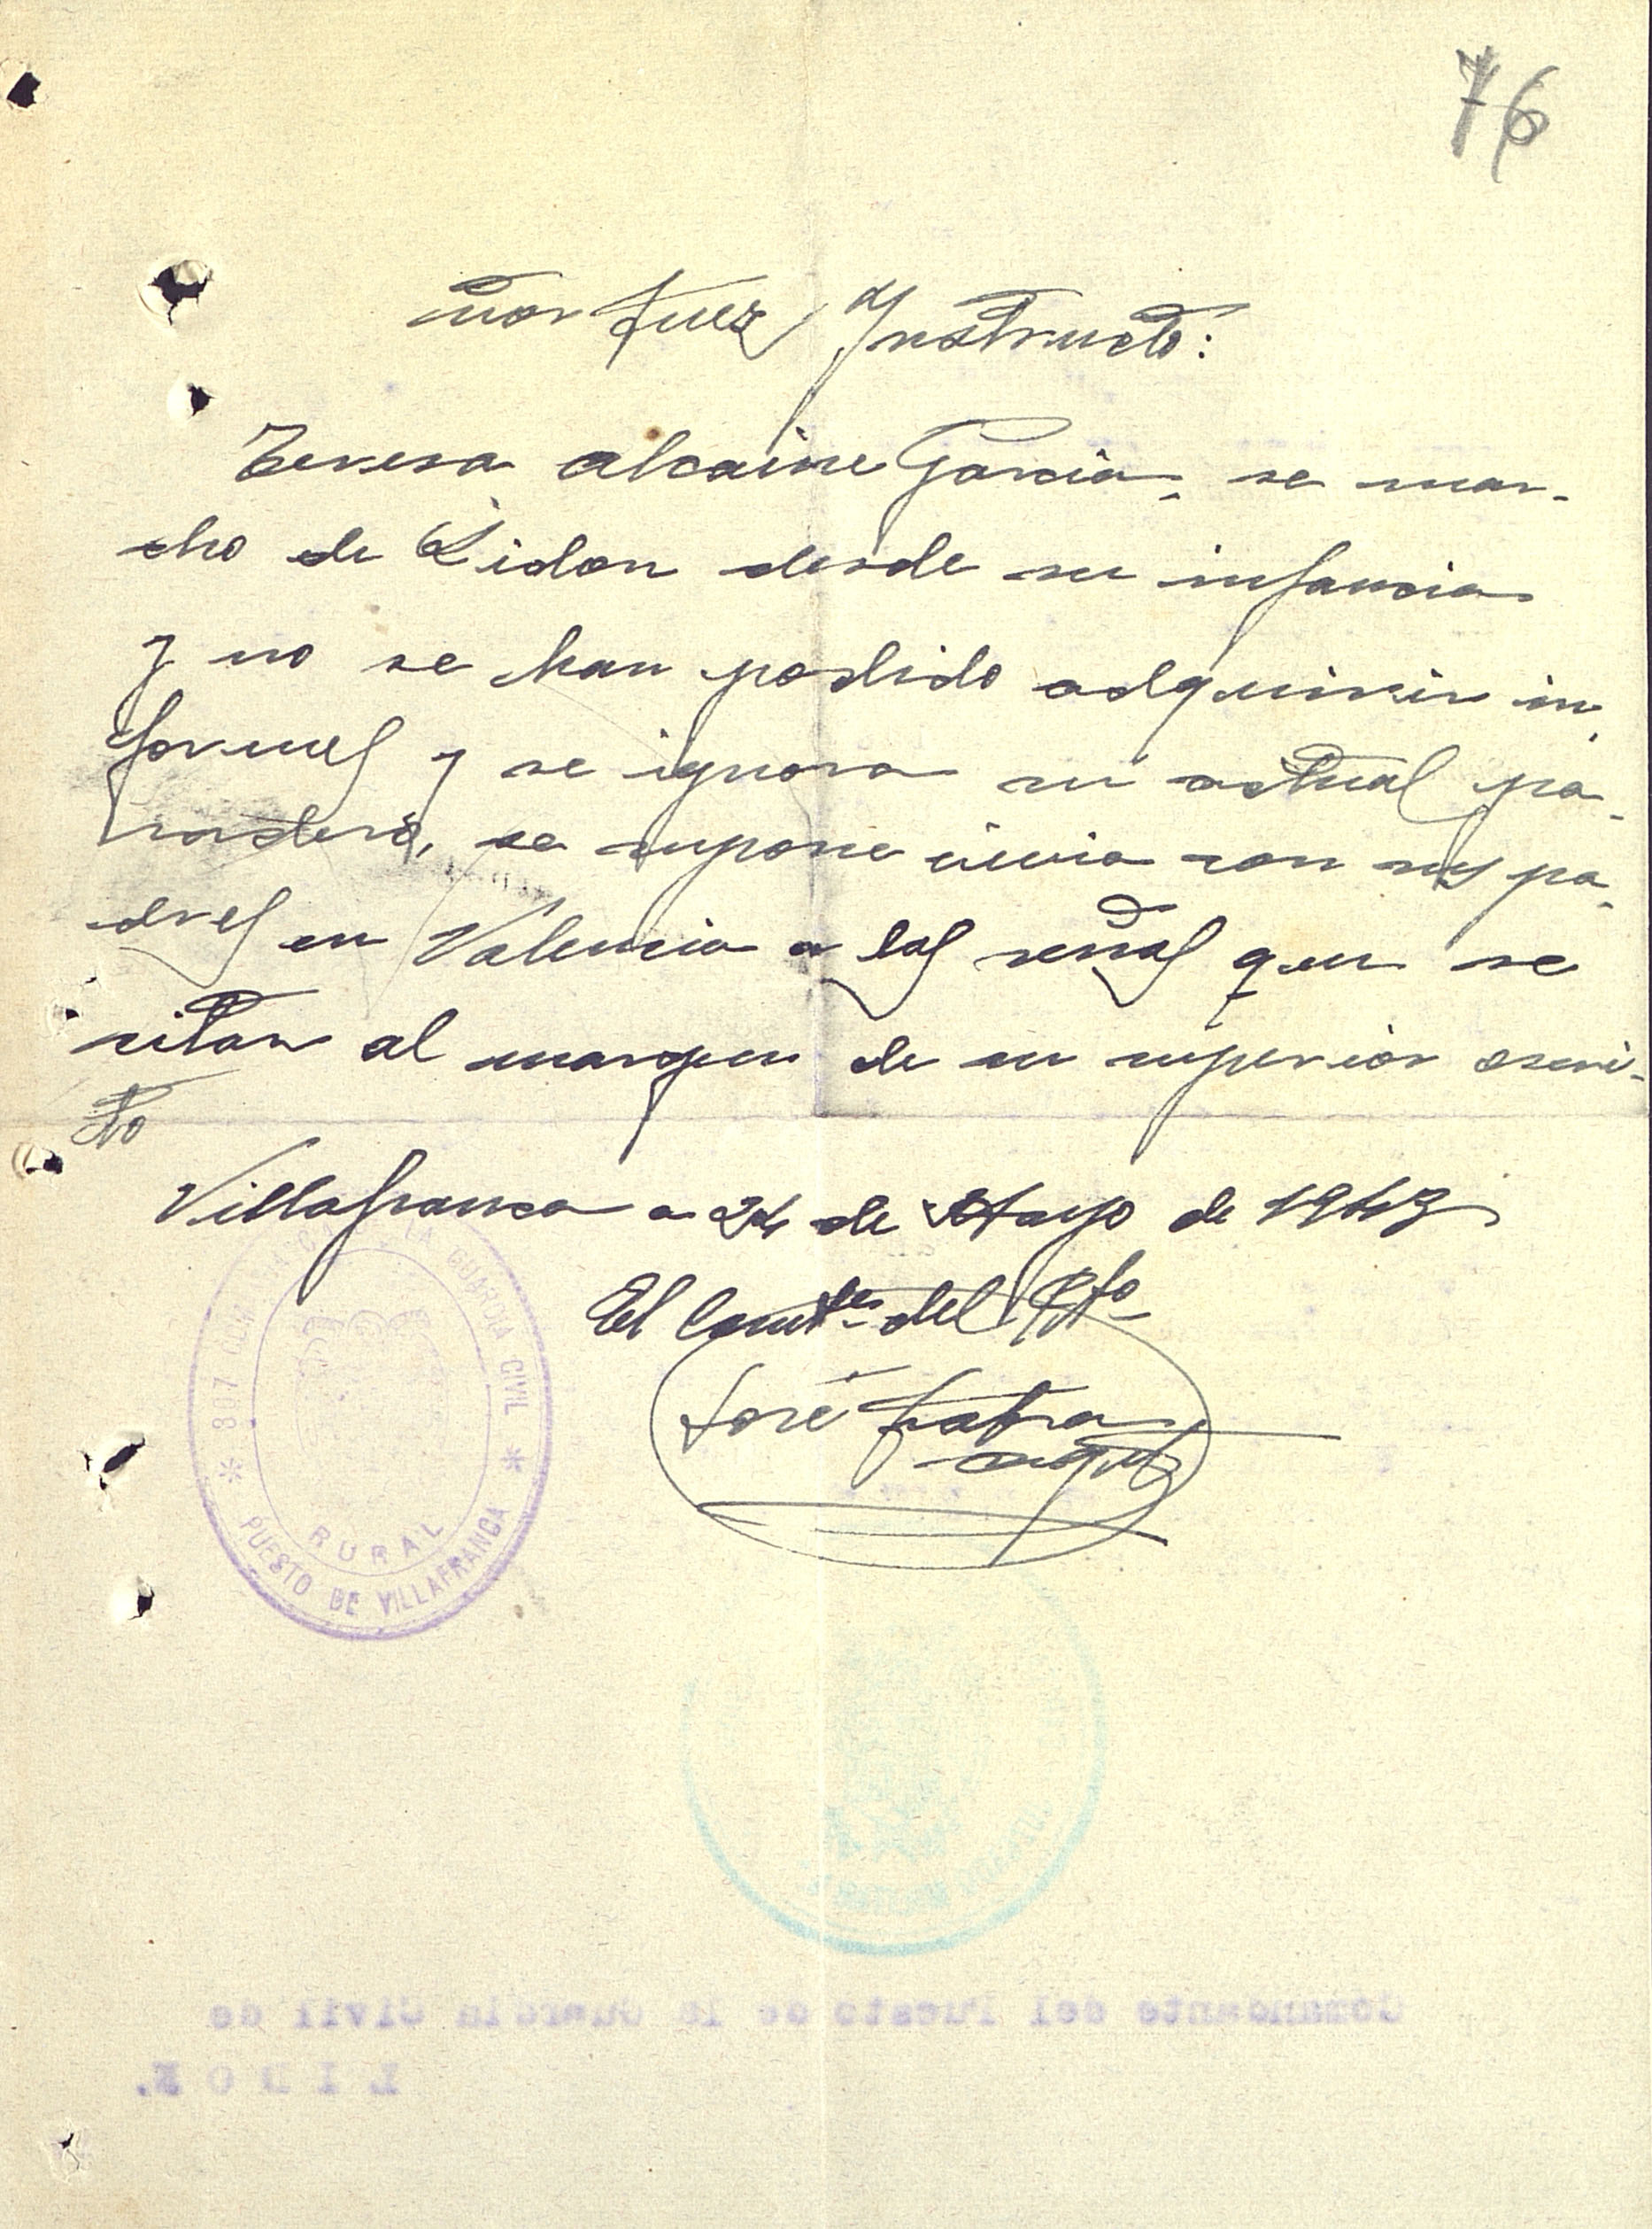 76
Juez Instructo:
Teresa alcaine Garcia, se mar-
cho de Lidon desde su infancia
y no se han podido adquirir in
formes y se ignora su actual pa-
radero, se supone vivia con sus pa-
dres en Valencia a las señas que se
citan al margen de su superior escri-
to
Villafranca a 24 de Mayo de 1943
El Comte del Pto
José
LA GUARDIA CIVIL
* 807
RURAL
PUESTO DE VILLAFRANCA *
Comandante del Puesto de la Guardia Civil de
LIDON.